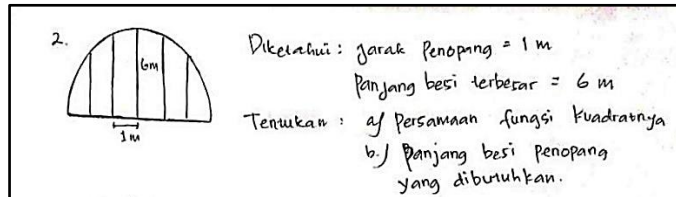 2.
6m
1m
Diketahui : jarak Penopang = 1 m
Panjang besi terbesar = 6 m
Tentukan : a) Persamaan fungsi kuadratnya
b.) Panjang besi penopang
yang dibutuhkan.